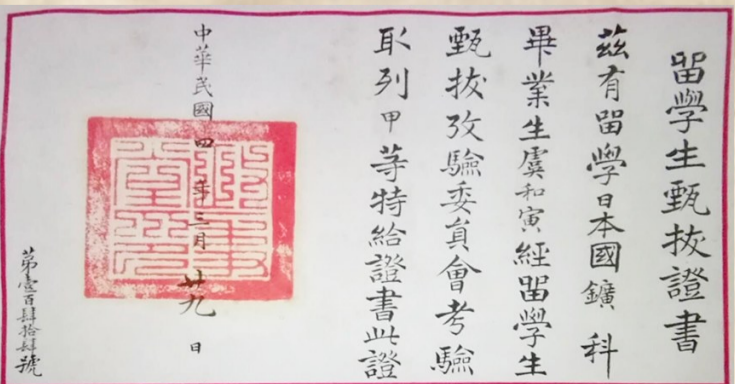 留學生甄拔證書
茲有留學日本國鑛科
畢業生虞和寅經留學生
甄拔攷驗委員會考驗
取列甲等特給證書此證
中華民國四年三月廿九日
第壹百肆拾肆號